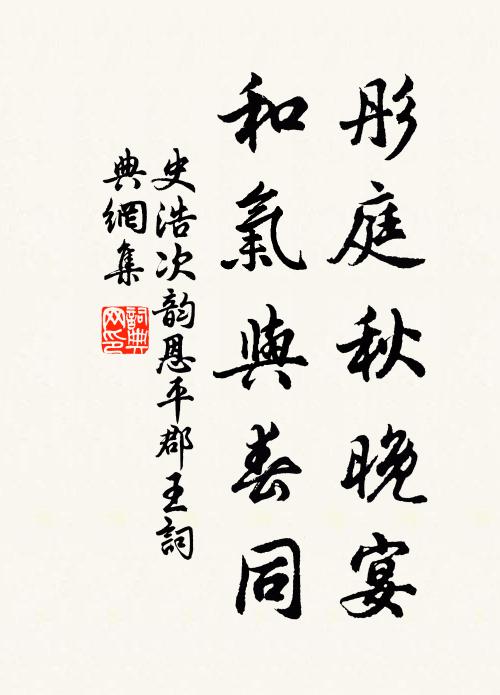 彤庭秋晚宴
和氣與春同
史浩次韵恩平郡王詞
典網集
詞典网印